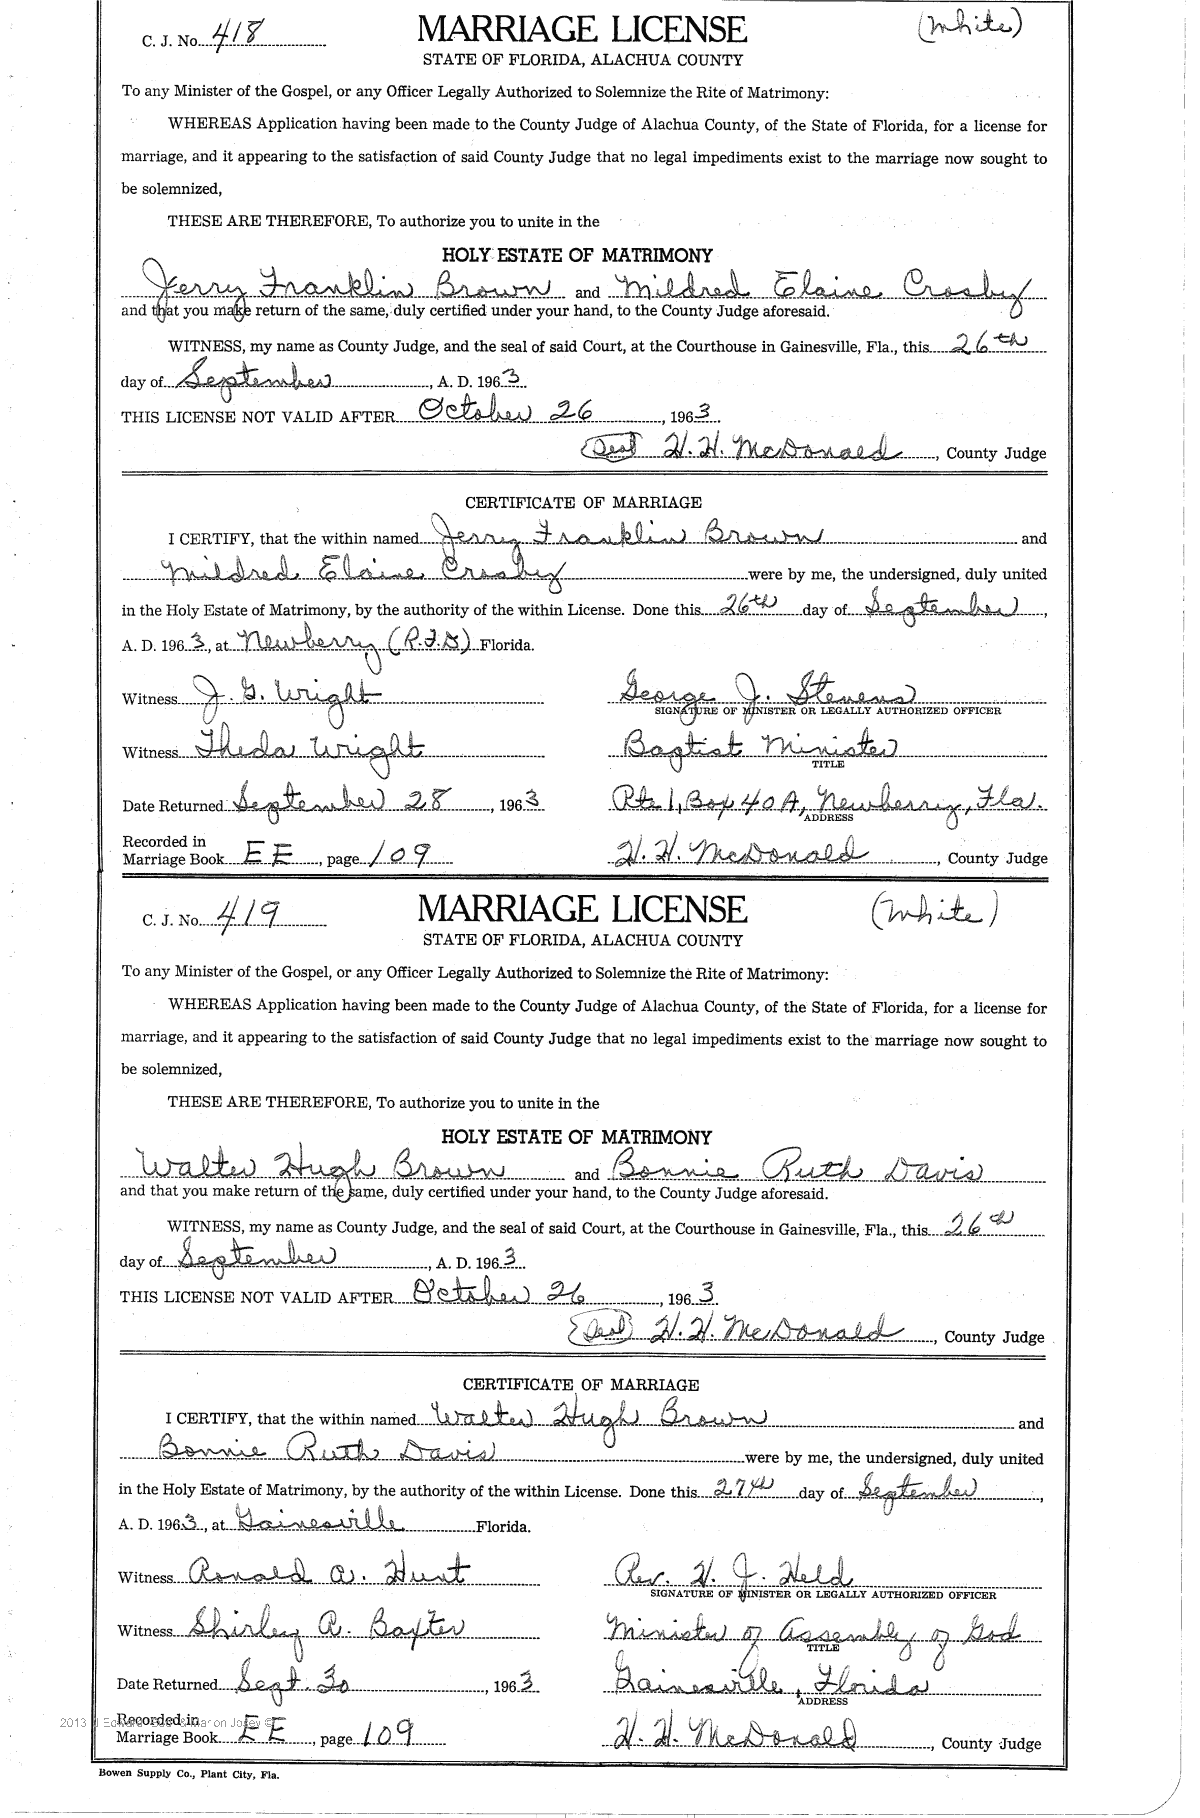 C. J. No. 418 MARRIAGE LICENSE (White)
STATE OF FLORIDA, ALACHUA COUNTY
To any Minister of the Gospel, or any Officer Legally Authorized to Solemnize the Rite of Matrimony:
WHEREAS Application having been made to the County Judge of Alachua County, of the State of Florida, for a license for
marriage, and it appearing to the satisfaction of said County Judge that no legal impediments exist to the marriage now sought to
be solemnized,
THESE ARE THEREFORE, To authorize you to unite in the
HOLY ESTATE OF MATRIMONY
Jerry Franklin Brown and Mildred Elaine Crosby
and that you make return of the same, duly certified under your hand, to the County Judge aforesaid.
WITNESS, my name as County Judge, and the seal of said Court, at the Courthouse in Gainesville, Fla., this 26th
day of September, A. D. 1963
THIS LICENSE NOT VALID AFTER October 26, 1963
(Seal) H. H. McDonald, County Judge
CERTIFICATE OF MARRIAGE
I CERTIFY, that the within named Jerry Franklin Brown and
Mildred Elaine Crosby were by me, the undersigned, duly united
in the Holy Estate of Matrimony, by the authority of the within License. Done this 26th day of September,
A. D. 1963, at Newberry (R.F.D) Florida.
Witness J. G. Wright George J. Stevens
SIGNATURE OF MINISTER OR LEGALLY AUTHORIZED OFFICER
Witness Theda Wright Baptist Minister
TITLE
Date Returned September 28, 1963 Rte 1, Box 40A, Newberry, Fla.
ADDRESS
Recorded in
Marriage Book EE, page 109 H. H. McDonald, County Judge
C. J. No. 419 MARRIAGE LICENSE (White)
STATE OF FLORIDA, ALACHUA COUNTY
To any Minister of the Gospel, or any Officer Legally Authorized to Solemnize the Rite of Matrimony:
WHEREAS Application having been made to the County Judge of Alachua County, of the State of Florida, for a license for
marriage, and it appearing to the satisfaction of said County Judge that no legal impediments exist to the marriage now sought to
be solemnized,
THESE ARE THEREFORE, To authorize you to unite in the
HOLY ESTATE OF MATRIMONY
Walter Hugh Brown and Bonnie Ruth Davis
and that you make return of the same, duly certified under your hand, to the County Judge aforesaid.
WITNESS, my name as County Judge, and the seal of said Court, at the Courthouse in Gainesville, Fla., this 26th
day of September, A. D. 1963
THIS LICENSE NOT VALID AFTER October 26, 1963
(Seal) H. H. McDonald, County Judge
CERTIFICATE OF MARRIAGE
I CERTIFY, that the within named Walter Hugh Brown and
Bonnie Ruth Davis were by me, the undersigned, duly united
in the Holy Estate of Matrimony, by the authority of the within License. Done this 27th day of September,
A. D. 1963, at Gainesville Florida.
Witness Ronald A. Hunt Rev. H. J. Held
SIGNATURE OF MINISTER OR LEGALLY AUTHORIZED OFFICER
Witness Shirley A. Baxter Minister of Assembly of God
TITLE
Date Returned Sept. 30, 1963 Gainesville, Florida
ADDRESS
Recorded in
2013
Marriage Book EE, page 109 H. H. McDonald, County Judge
Bowen Supply Co., Plant City, Fla.